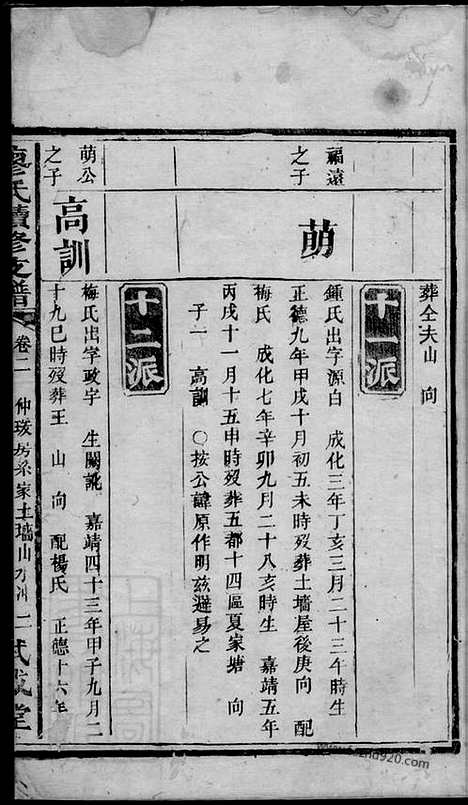 葬仝夫山　向
十一派
福遠之子
萌
鍾氏出字源白　成化三年丁亥三月二十三年時生
正德九年甲戌十月初五未時歿葬土墻屋後庚向　配
梅氏　成化七年辛卯九月二十八亥時生　嘉靖五年
丙戌十一月十五申時歿葬五都十四區夏家塘　向
子一　高訓　○按公諱原作明茲避易之
十二派
萌公之子
高訓
梅氏出字政字　生闕訛　嘉靖四十三年甲子九月二
十九巳時歿葬王　山　向　配楊氏　正德十六年
廖氏續修支譜　卷二　仲璞房梁家土墻山　二　武威堂